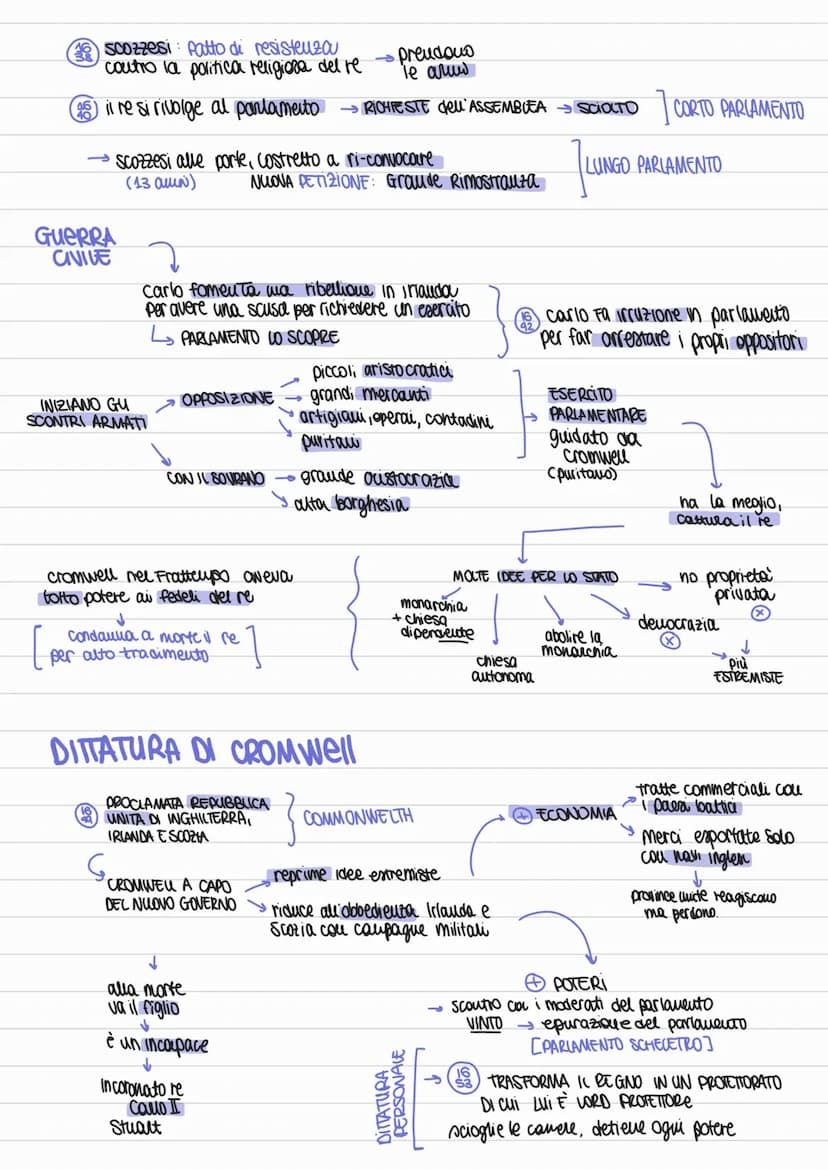 1638 scozzesi: Patto di resistenza
contro la politica religiosa del re → prendono
le armi
1640 il re si rivolge al parlamento → RICHIESTE dell'ASSEMBLEA → SCIOLTO ] CORTO PARLAMENTO
→ scozzesi alle porte, costretto a ri-convocare
(13 anni) NUOVA PETIZIONE: Grande Rimostranza
[LUNGO PARLAMENTO
GUERRA
CIVILE
Carlo fomenta una ribellione in Irlanda
per avere una scusa per richiedere un esercito
↳ PARLAMENTO LO SCOPRE
1642 Carlo fa irruzione in parlamento
per far arrestare i propri oppositori
INIZIANO GLI
SCONTRI ARMATI
→ OPPOSIZIONE
→ piccoli aristocratici
→ grandi mercanti
→ artigiani, operai, contadini
↘ puritani
CON IL SOVRANO → grande aristocrazia
↘ alta borghesia
ESERCITO
PARLAMENTARE
guidato da
Cromwell
(puritano)
ha la meglio,
cattura il re
MOLTE IDEE PER LO STATO
monarchia
+ chiesa
dipendente
chiesa
autonoma
abolire la
monarchia
democrazia
ⓧ
no proprietà
privata
ⓧ
→ più
ESTREMISTE
Cromwell nel Frattempo aveva
tolto potere ai fedeli del re
↓
[condanna a morte il re
per alto tradimento]
DITTATURA DI CROMWell
1649 PROCLAMATA REPUBBLICA
UNITA DI INGHILTERRA,
IRLANDA E SCOZIA
} COMMONWELTH
CROMWELL A CAPO
DEL NUOVO GOVERNO
→ reprime idee estremiste
→ riduce all'obbedienza Irlanda e
Scozia con campagne militari
⊕ ECONOMIA
→ tratte commerciali con
i paesi baltici
↘ Merci esportate solo
con navi inglesi
↓
province unite reagiscono
ma perdono.
↓
alla morte
va il figlio
↓
è un incapace
↓
Incoronato re
Carlo II
Stuart
⊕ POTERI
→ scontro con i moderati del parlamento
VINTO → epurazione del parlamento
[PARLAMENTO SCHELETRO]
DITTATURA
PERSONALE
→ 1653 TRASFORMA IL REGNO IN UN PROTETTORATO
DI CUI LUI È LORD PROTETTORE
scioglie le camere, detiene ogni potere